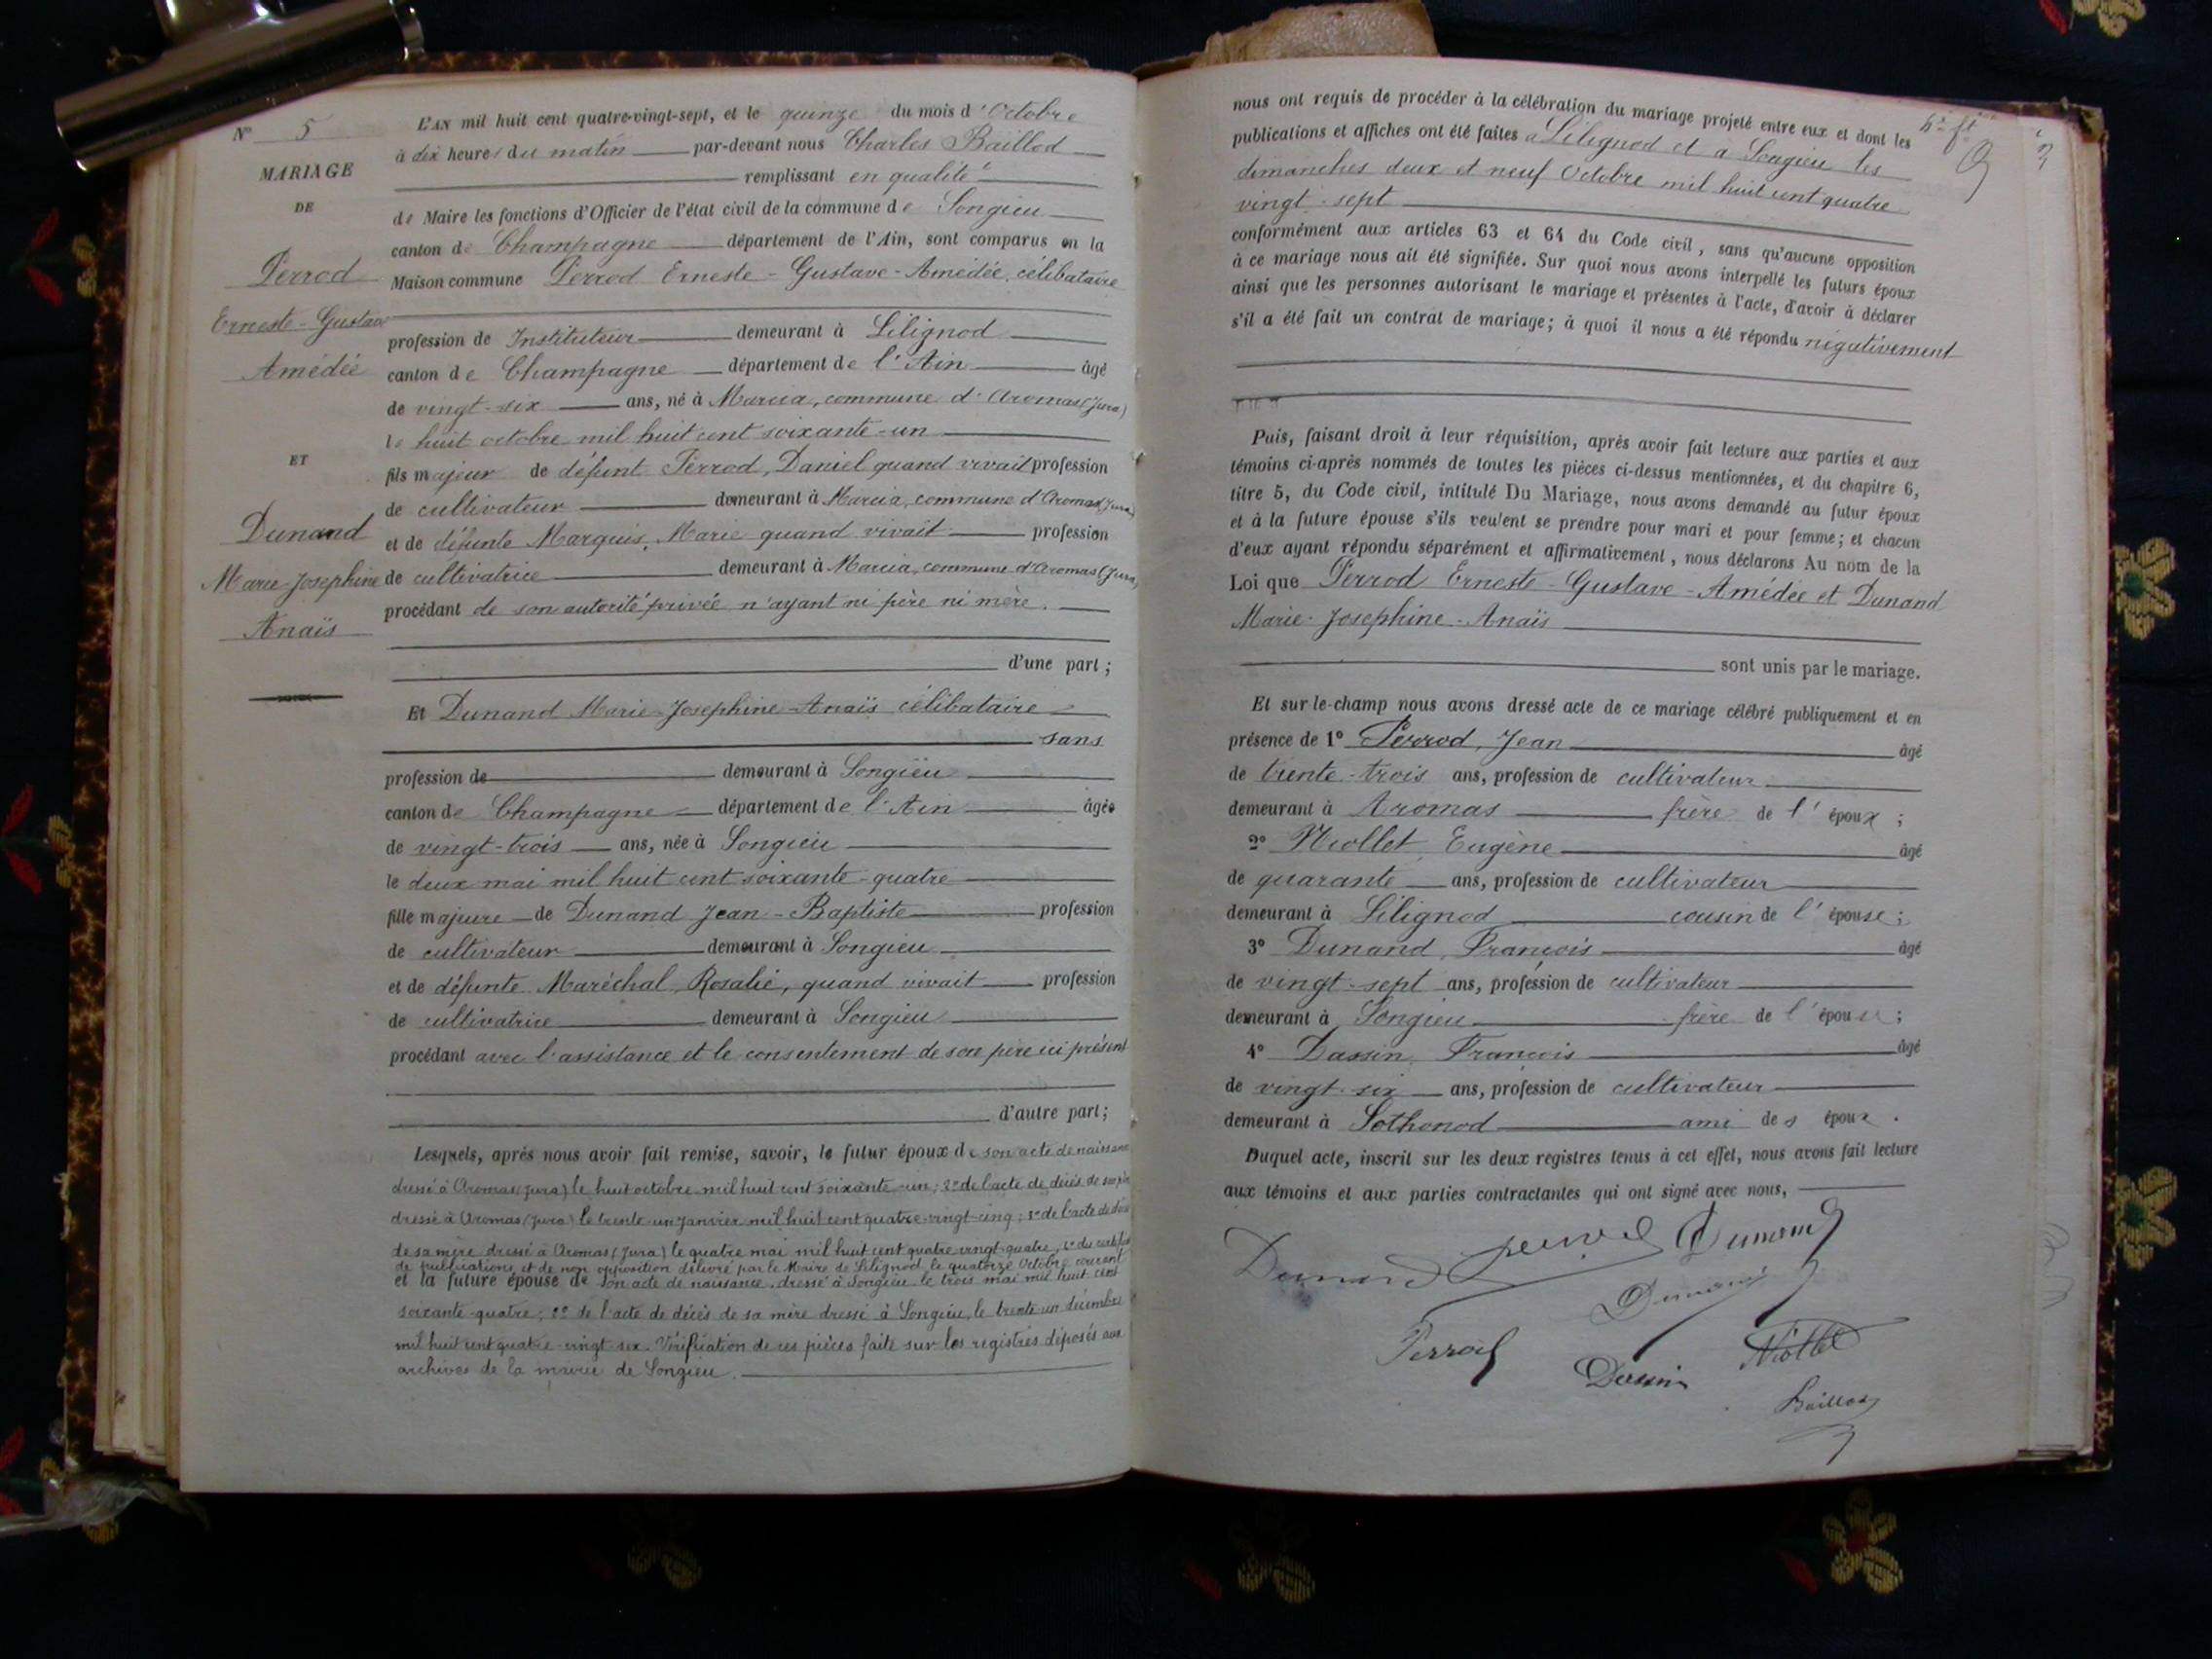 N° 5
MARIAGE
DE
Perrod
Erneste-Gustave
Amédée
ET
Dunand
Marie-Josephine
Anaïs
L'AN mil huit cent quatre-vingt-sept, et le quinze du mois d'Octobre
à dix heures du matin par-devant nous Charles Baillod
remplissant en qualité
de Maire les fonctions d'Officier de l'état civil de la commune de Songieu
canton de Champagne département de l'Ain, sont comparus en la
Maison commune Perrod Erneste-Gustave-Amédée, célibataire
profession de Instituteur demeurant à Lilignod
canton de Champagne département de l'Ain âgé
de vingt-six ans, né à Marcia, commune d'Aromas (Jura)
le huit octobre mil huit cent soixante-un
fils majeur de défunt Perrod, Daniel quand vivait profession
de cultivateur demeurant à Marcia, commune d'Aromas (Jura)
et de défunte Marquis, Marie quand vivait profession
de cultivatrice demeurant à Marcia, commune d'Aromas (Jura)
procédant de son autorité privée n'ayant ni père ni mère.
d'une part;
Et Dunand Marie-Josephine-Anaïs célibataire
sans
profession de demeurant à Songieu
canton de Champagne département de l'Ain âgée
de vingt-trois ans, née à Songieu
le deux mai mil huit cent soixante-quatre
fille majeure de Dunand Jean-Baptiste profession
de cultivateur demeurant à Songieu
et de défunte Maréchal Rosalie, quand vivait profession
de cultivatrice demeurant à Songieu
procédant avec l'assistance et le consentement de son père ici présent
d'autre part;
Lesquels, après nous avoir fait remise, savoir, le futur époux de son acte de naissance
dressé à Aromas (Jura) le huit octobre mil huit cent soixante-un; 2° de l'acte de décès de son père
dressé à Aromas (Jura) le trente-un janvier mil huit cent quatre-vingt-cinq; 3° de l'acte de décès
de sa mère dressé à Aromas (Jura) le quatre mai mil huit cent quatre vingt-quatre, 4° du certificat
de publications et de non opposition délivré par le Maire de Lilignod le quatorze Octobre courant
et la future épouse de son acte de naissance, dressé à Songieu le trois mai mil huit cent
soixante-quatre; 2° de l'acte de décès de sa mère dressé à Songieu, le trente-un décembre
mil huit cent quatre-vingt-six. Vérification de ces pièces faite sur les registres déposés aux
archives de la mairie de Songieu.
nous ont requis de procéder à la célébration du mariage projeté entre eux et dont les
publications et affiches ont été faites à Lilignod et à Songieu les
dimanches deux et neuf Octobre mil huit cent quatre
vingt-sept
conformément aux articles 63 et 64 du Code civil, sans qu'aucune opposition
à ce mariage nous ait été signifiée. Sur quoi nous avons interpellé les futurs époux
ainsi que les personnes autorisant le mariage et présentes à l'acte, d'avoir à déclarer
s'il a été fait un contrat de mariage; à quoi il nous a été répondu négativement
Puis, faisant droit à leur réquisition, après avoir fait lecture aux parties et aux
témoins ci-après nommés de toutes les pièces ci-dessus mentionnées, et du chapitre 6,
titre 5, du Code civil, intitulé Du Mariage, nous avons demandé au futur époux
et à la future épouse s'ils veulent se prendre pour mari et pour femme; et chacun
d'eux ayant répondu séparément et affirmativement, nous déclarons Au nom de la
Loi que Perrod Erneste-Gustave-Amédée et Dunand
Marie-Josephine-Anaïs
sont unis par le mariage.
Et sur-le-champ nous avons dressé acte de ce mariage célébré publiquement et en
présence de 1° Perrod, Jean âgé
de trente-trois ans, profession de cultivateur
demeurant à Aromas frère de l'époux;
2° Niollet, Eugène âgé
de quarante ans, profession de cultivateur
demeurant à Lilignod cousin de l'épouse;
3° Dunand, François âgé
de vingt-sept ans, profession de cultivateur
demeurant à Songieu frère de l'épouse;
4° Dassin, François âgé
de vingt-six ans, profession de cultivateur
demeurant à Sothonod ami des époux.
Duquel acte, inscrit sur les deux registres tenus à cet effet, nous avons fait lecture
aux témoins et aux parties contractantes qui ont signé avec nous,
Dunand perrod Dunand
Dunand
Perrod Dassin Niollet
Baillod